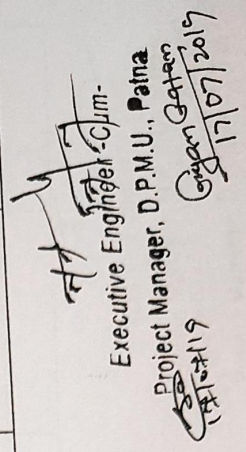 Executive Engineer-Cum-
Project Manager, D.P.M.U., Patna
17/07/19
Gyan Ratan
17/07/2019